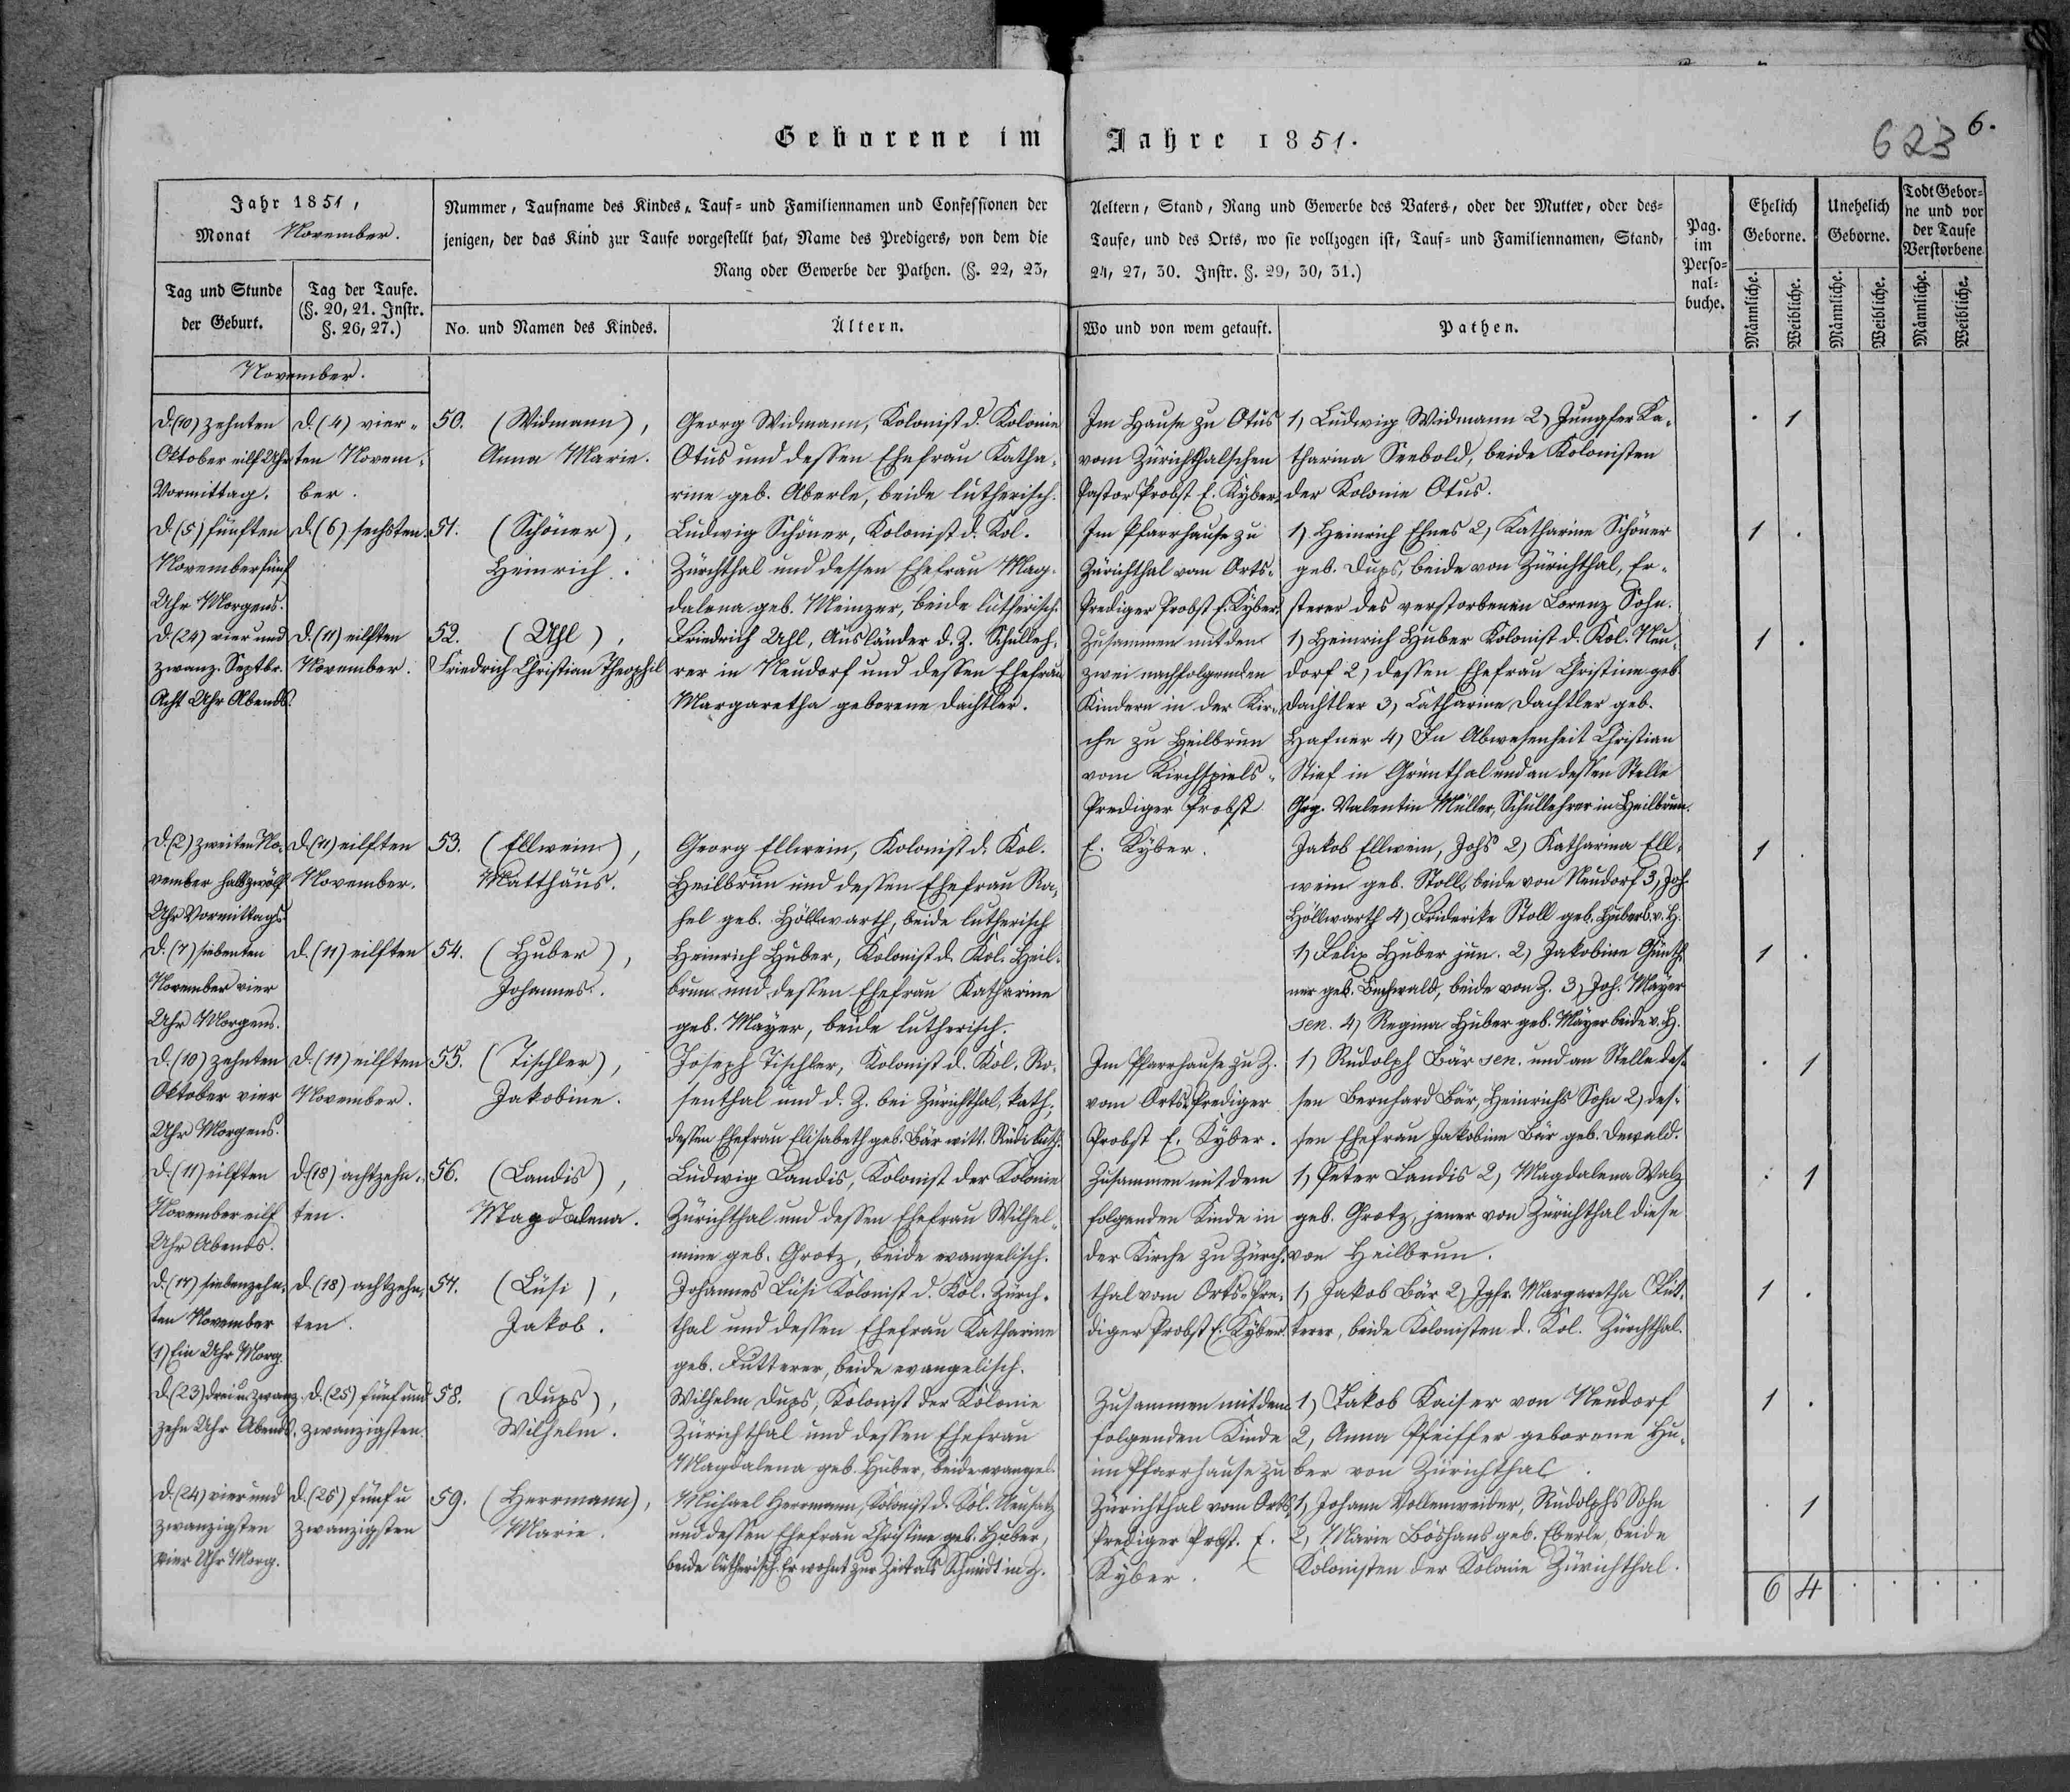 Geborene im Jahre 1851.
623 6.
Jahr 1851,
Monat November.
Tag und Stunde
der Geburt.
Tag der Taufe.
(§. 20, 21. Instr.
§. 26, 27.)
Nummer, Taufname des Kindes, Tauf- und Familiennamen und Confessionen der
jenigen, der das Kind zur Taufe vorgestellt hat, Name des Predigers, von dem die
Rang oder Gewerbe der Pathen. (§. 22, 23,
No. und Namen des Kindes.
Ältern.
Aeltern, Stand, Rang und Gewerbe des Vaters, oder der Mutter, oder des-
Taufe, und des Orts, wo sie vollzogen ist, Tauf- und Familiennamen, Stand,
24, 27, 30. Instr. §. 29, 30, 31.)
Wo und von wem getauft.
Pathen.
Pag.
im
Perso-
nal-
buche.
Ehelich
Geborne.
Unehelich
Geborne.
Todt Gebor-
ne und vor
der Taufe
Verstorbene
Männliche.
Weibliche.
Männliche.
Weibliche.
Männliche.
Weibliche.
November.
D. (10) zehnten
Oktober eilf Uhr
Vormittag.
D. (4) vier-
ten Novem-
ber.
50. (Widmann),
Anna Marie.
Georg Widmann, Kolonist d. Kolonie
Otus und dessen Ehefrau Katha-
rine geb. Aberle, beide lutherisch.
Im Hause zu Otus
vom Zürichthalschen
Pastor Probst E. Kyber.
1) Ludwig Widmann 2) Jungfer Ka-
tharina Seebold, beide Kolonisten
der Kolonie Otus.
. 1
D. (5) fünften
November fünf
Uhr Morgens.
D. (6) sechsten.
51. (Schöner),
Heinrich.
Ludwig Schöner, Kolonist d. Kol.
Zürchthal und dessen Ehefrau Mag-
dalena geb. Meinzer, beide lutherisch.
Im Pfarrhause zu
Zürichthal vom Orts-
Prediger Probst E. Kyber.
1) Heinrich Ehnes 2) Katharine Schöner
geb. Dups, beide von Zürichthal, Er-
sterer des verstorbenen Lorenz Sohn.
1 .
D. (24) vier und
zwanz. Septbr.
Acht Uhr Abends.
D. (11) eilften
November.
52. (Uhl),
Friedrich Christian Theophil
Friedrich Uhl, Ausländer d. Z. Schulleh-
rer in Neudorf und dessen Ehefrau
Margaretha geborene Dachtler.
Zusammen mit den
zwei nachfolgenden
Kindern in der Kir-
che zu Heilbrun
vom Kirchspiels-
Prediger Probst
E. Kyber.
1) Heinrich Huber Kolonist d. Kol. Neu-
dorf 2) dessen Ehefrau Christine geb.
Dachtler 3) Catharine Dachtler geb.
Hafner 4) In Abwesenheit Christian
Stief in Grünthal und an dessen Stelle
Grg. Valentin Müller, Schullehrer in Heilbrun.
1 .
D. (2) zweiten No-
vember halb zwölf
Uhr Vormittags.
D. (11) eilften
November.
53. (Ellwein),
Matthäus.
Georg Ellwein, Kolonist d. Kol.
Heilbrun und dessen Ehefrau Ra-
hel geb. Höllwarth, beide lutherisch
Jakob Ellwein, Johs 2) Katharina Ell-
wein geb. Stoll, beide von Neudorf 3) Joh.
Höllwarth 4) Friderike Stoll geb. Huber b. v. H.
1 .
D. (7) siebenten
November vier
Uhr Morgens.
D. (11) eilften
54. (Huber),
Johannes.
Heinrich Huber, Kolonist d. Kol. Heil-
brun und dessen Ehefrau Katharine
geb. Mayer, beide lutherisch.
1) Felix Huber jun. 2) Jakobine Günth-
ner geb. Buchwald, beide von Z. 3) Joh. Mayer
sen. 4) Regina Huber geb. Mayer beide v. H.
1 .
D. (10) zehnten
Oktober vier
Uhr Morgens.
D. (11) eilften
November.
55. (Tischler),
Jakobine.
Joseph Tischler, Kolonist d. Kol. Ro-
senthal und d. Z. bei Zürichthal, kath.,
dessen Ehefrau Elisabeth geb. Bär witt. Rudi luth.
Im Pfarrhause zu Z.
vom Orts-Prediger
Probst E. Kyber.
1) Rudolph Bär sen. und an Stelle des-
sen Bernhard Bär, Heinrichs Sohn 2) des-
sen Ehefrau Jakobine Bär geb. Dewald.
. 1
D. (11) eilften
November eilf
Uhr Abends.
D. (18) achtzehn-
ten.
56. (Landis),
Magdalena.
Ludwig Landis, Kolonist der Kolonie
Zürichthal und dessen Ehefrau Wilhel-
mine geb. Grotz, beide evangelisch.
Zusammen mit dem
folgenden Kinde in
der Kirche zu Zürch-
thal vom Orts-Pre-
diger Probst E. Kyber.
1) Peter Landis 2) Magdalena Walz
geb. Grotz, jener von Zürichthal diese
von Heilbrun.
. 1
D. (17) siebenzehn-
ten November
(1) Ein Uhr Morg.
D. (18) achtzehn-
ten.
57. (Lüsi),
Jakob.
Johannes Lüsi Kolonist d. Kol. Zürch-
thal und dessen Ehefrau Katharine
geb. Futterer, beide evangelisch.
1) Jakob Bär 2) Jgfr. Margaretha Fut-
terer, beide Kolonisten d. Kol. Zürchthal.
1 .
D. (23) drei u. zwanz.
zehn Uhr Abends.
D. (25) fünf und
zwanzigsten.
58. (Dups),
Wilhelm.
Wilhelm Dups, Kolonist der Kolonie
Zürichthal und dessen Ehefrau
Magdalena geb. Huber, beide evangel.
Zusammen mit dem
folgenden Kinde
im Pfarrhause zu
Zürichthal vom Orts-
Prediger Probst. E.
Kyber.
1) Jakob Kaiser von Neudorf
2, Anna Pfeiffer geborene Hu-
ber von Zürichthal.
1 .
D. (24) vier und
zwanzigsten
vier Uhr Morg.
D. (25) fünf u
zwanzigsten
59. (Herrmann),
Marie.
Michael Herrmann, Kolonist d. Kol. Neusatz
und dessen Ehefrau Christine geb. Huber,
beide lutherisch. Er wohnt zur Zeit als Schmidt in Z.
1, Johann Vollenweider, Rudolphs Sohn
2, Marie Böshans geb. Eberle, beide
Kolonisten der Kolonie Zürichthal.
. 1
6 4 . . . .